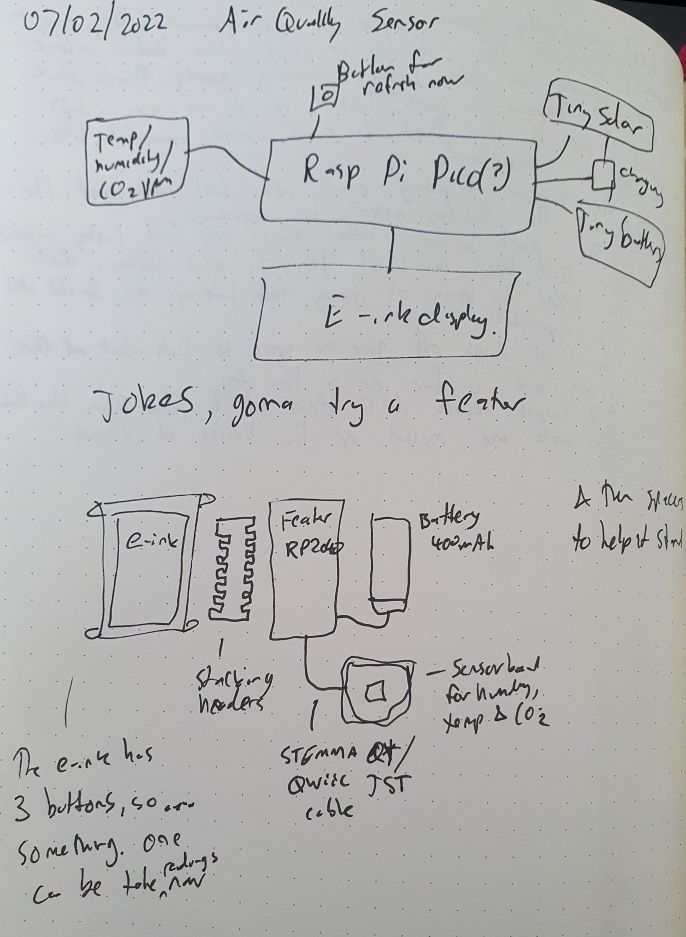 07/02/2022 Air Quality Sensor
Button for
refresh now
Temp/
humidity/
CO2
Rasp Pi Pico(?)
Tiny Solar
Charging
Tiny battery
E-ink display.
Jokes, gonna try a feater
e-ink
Feater
RP2040
Battery
400mAh
to help it
Stacking
headers
Sensor board
for humidity,
temp & CO2
STEMMA QT/
Qwiic JST
cable
The e-ink has
3 buttons, so
something. one
can be take readings
now